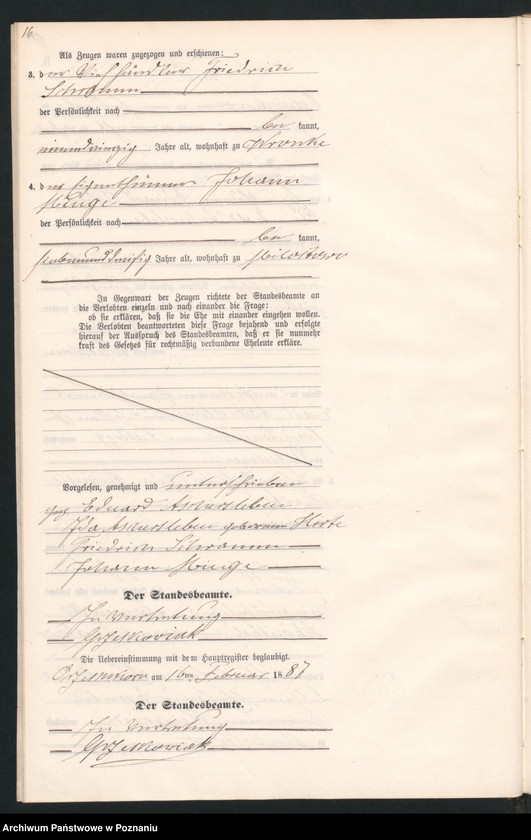 16.
Als Zeugen waren zugezogen und erschienen:
3. der Viehhändler Friedrich
Schramm
der Persönlichkeit nach
be kannt,
neunundvierzig Jahre alt, wohnhaft zu Wronke
4. der Eigenthümer Johann
der Persönlichkeit nach
be kannt,
siebenunddreißig Jahre alt, wohnhaft zu
In Gegenwart der Zeugen richtete der Standesbeamte an
die Verlobten einzeln und nach einander die Frage:
ob sie erklären, daß sie die Ehe mit einander eingehen wollen.
Die Verlobten beantworteten diese Frage bejahend und erfolgte
hierauf der Ausspruch des Standesbeamten, daß er sie nunmehr
kraft des Gesetzes für rechtmäßig verbundene Eheleute erkläre.
Vorgelesen, genehmigt und unterschrieben
gez. Eduard Aschersleben
Ida Aschersleben geborene
Friedrich Schramm
Johann
Der Standesbeamte.
In Vertretung
Grzeskowiak
Die Uebereinstimmung mit dem Hauptregister beglaubigt.
am 16ten Februar 1887
Der Standesbeamte.
In Vertretung
Grzeskowiak
Archiwum Państwowe w Poznaniu